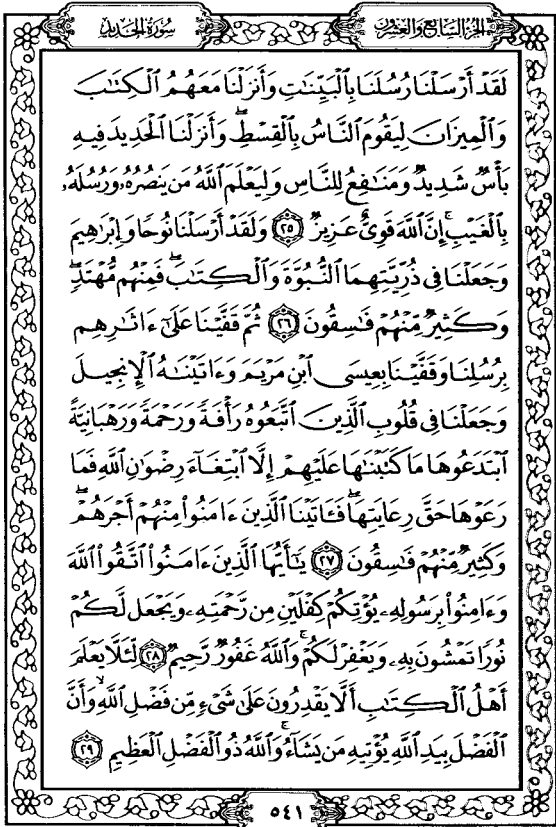 سورة الحديد
الجزء السابع والعشرون
لَقَدْ أَرْسَلْنَا رُسُلَنَا بِالْبَيِّنَاتِ وَأَنزَلْنَا مَعَهُمُ الْكِتَٰبَ
وَالْمِيزَانَ لِيَقُومَ النَّاسُ بِالْقِسْطِ ۖ وَأَنزَلْنَا الْحَدِيدَ فِيهِ
بَأْسٌ شَدِيدٌ وَمَنَٰفِعُ لِلنَّاسِ وَلِيَعْلَمَ اللَّهُ مَن يَنصُرُهُۥ وَرُسُلَهُۥ
بِالْغَيْبِ ۚ إِنَّ اللَّهَ قَوِيٌّ عَزِيزٌ ﴿٢٥﴾ وَلَقَدْ أَرْسَلْنَا نُوحًا وَإِبْرَٰهِيمَ
وَجَعَلْنَا فِي ذُرِّيَّتِهِمَا النُّبُوَّةَ وَالْكِتَٰبَ ۖ فَمِنْهُم مُّهْتَدٍ ۖ
وَكَثِيرٌ مِّنْهُمْ فَٰسِقُونَ ﴿٢٦﴾ ثُمَّ قَفَّيْنَا عَلَىٰٓ ءَاثَٰرِهِم
بِرُسُلِنَا وَقَفَّيْنَا بِعِيسَى ابْنِ مَرْيَمَ وَءَاتَيْنَٰهُ الْإِنجِيلَ
وَجَعَلْنَا فِي قُلُوبِ الَّذِينَ اتَّبَعُوهُ رَأْفَةً وَرَحْمَةً وَرَهْبَانِيَّةً
ابْتَدَعُوهَا مَا كَتَبْنَٰهَا عَلَيْهِمْ إِلَّا ابْتِغَآءَ رِضْوَٰنِ اللَّهِ فَمَا
رَعَوْهَا حَقَّ رِعَايَتِهَا ۖ فَـَٔاتَيْنَا الَّذِينَ ءَامَنُوا مِنْهُمْ أَجْرَهُمْ ۖ
وَكَثِيرٌ مِّنْهُمْ فَٰسِقُونَ ﴿٢٧﴾ يَٰٓأَيُّهَا الَّذِينَ ءَامَنُوا اتَّقُوا اللَّهَ
وَءَامِنُوا بِرَسُولِهِۦ يُؤْتِكُمْ كِفْلَيْنِ مِن رَّحْمَتِهِۦ وَيَجْعَل لَّكُمْ
نُورًا تَمْشُونَ بِهِۦ وَيَغْفِرْ لَكُمْ ۚ وَاللَّهُ غَفُورٌ رَّحِيمٌ ﴿٢٨﴾ لِّئَلَّا يَعْلَمَ
أَهْلُ الْكِتَٰبِ أَلَّا يَقْدِرُونَ عَلَىٰ شَيْءٍ مِّن فَضْلِ اللَّهِ ۙ وَأَنَّ
الْفَضْلَ بِيَدِ اللَّهِ يُؤْتِيهِ مَن يَشَآءُ ۚ وَاللَّهُ ذُو الْفَضْلِ الْعَظِيمِ ﴿٢٩﴾
٥٤١